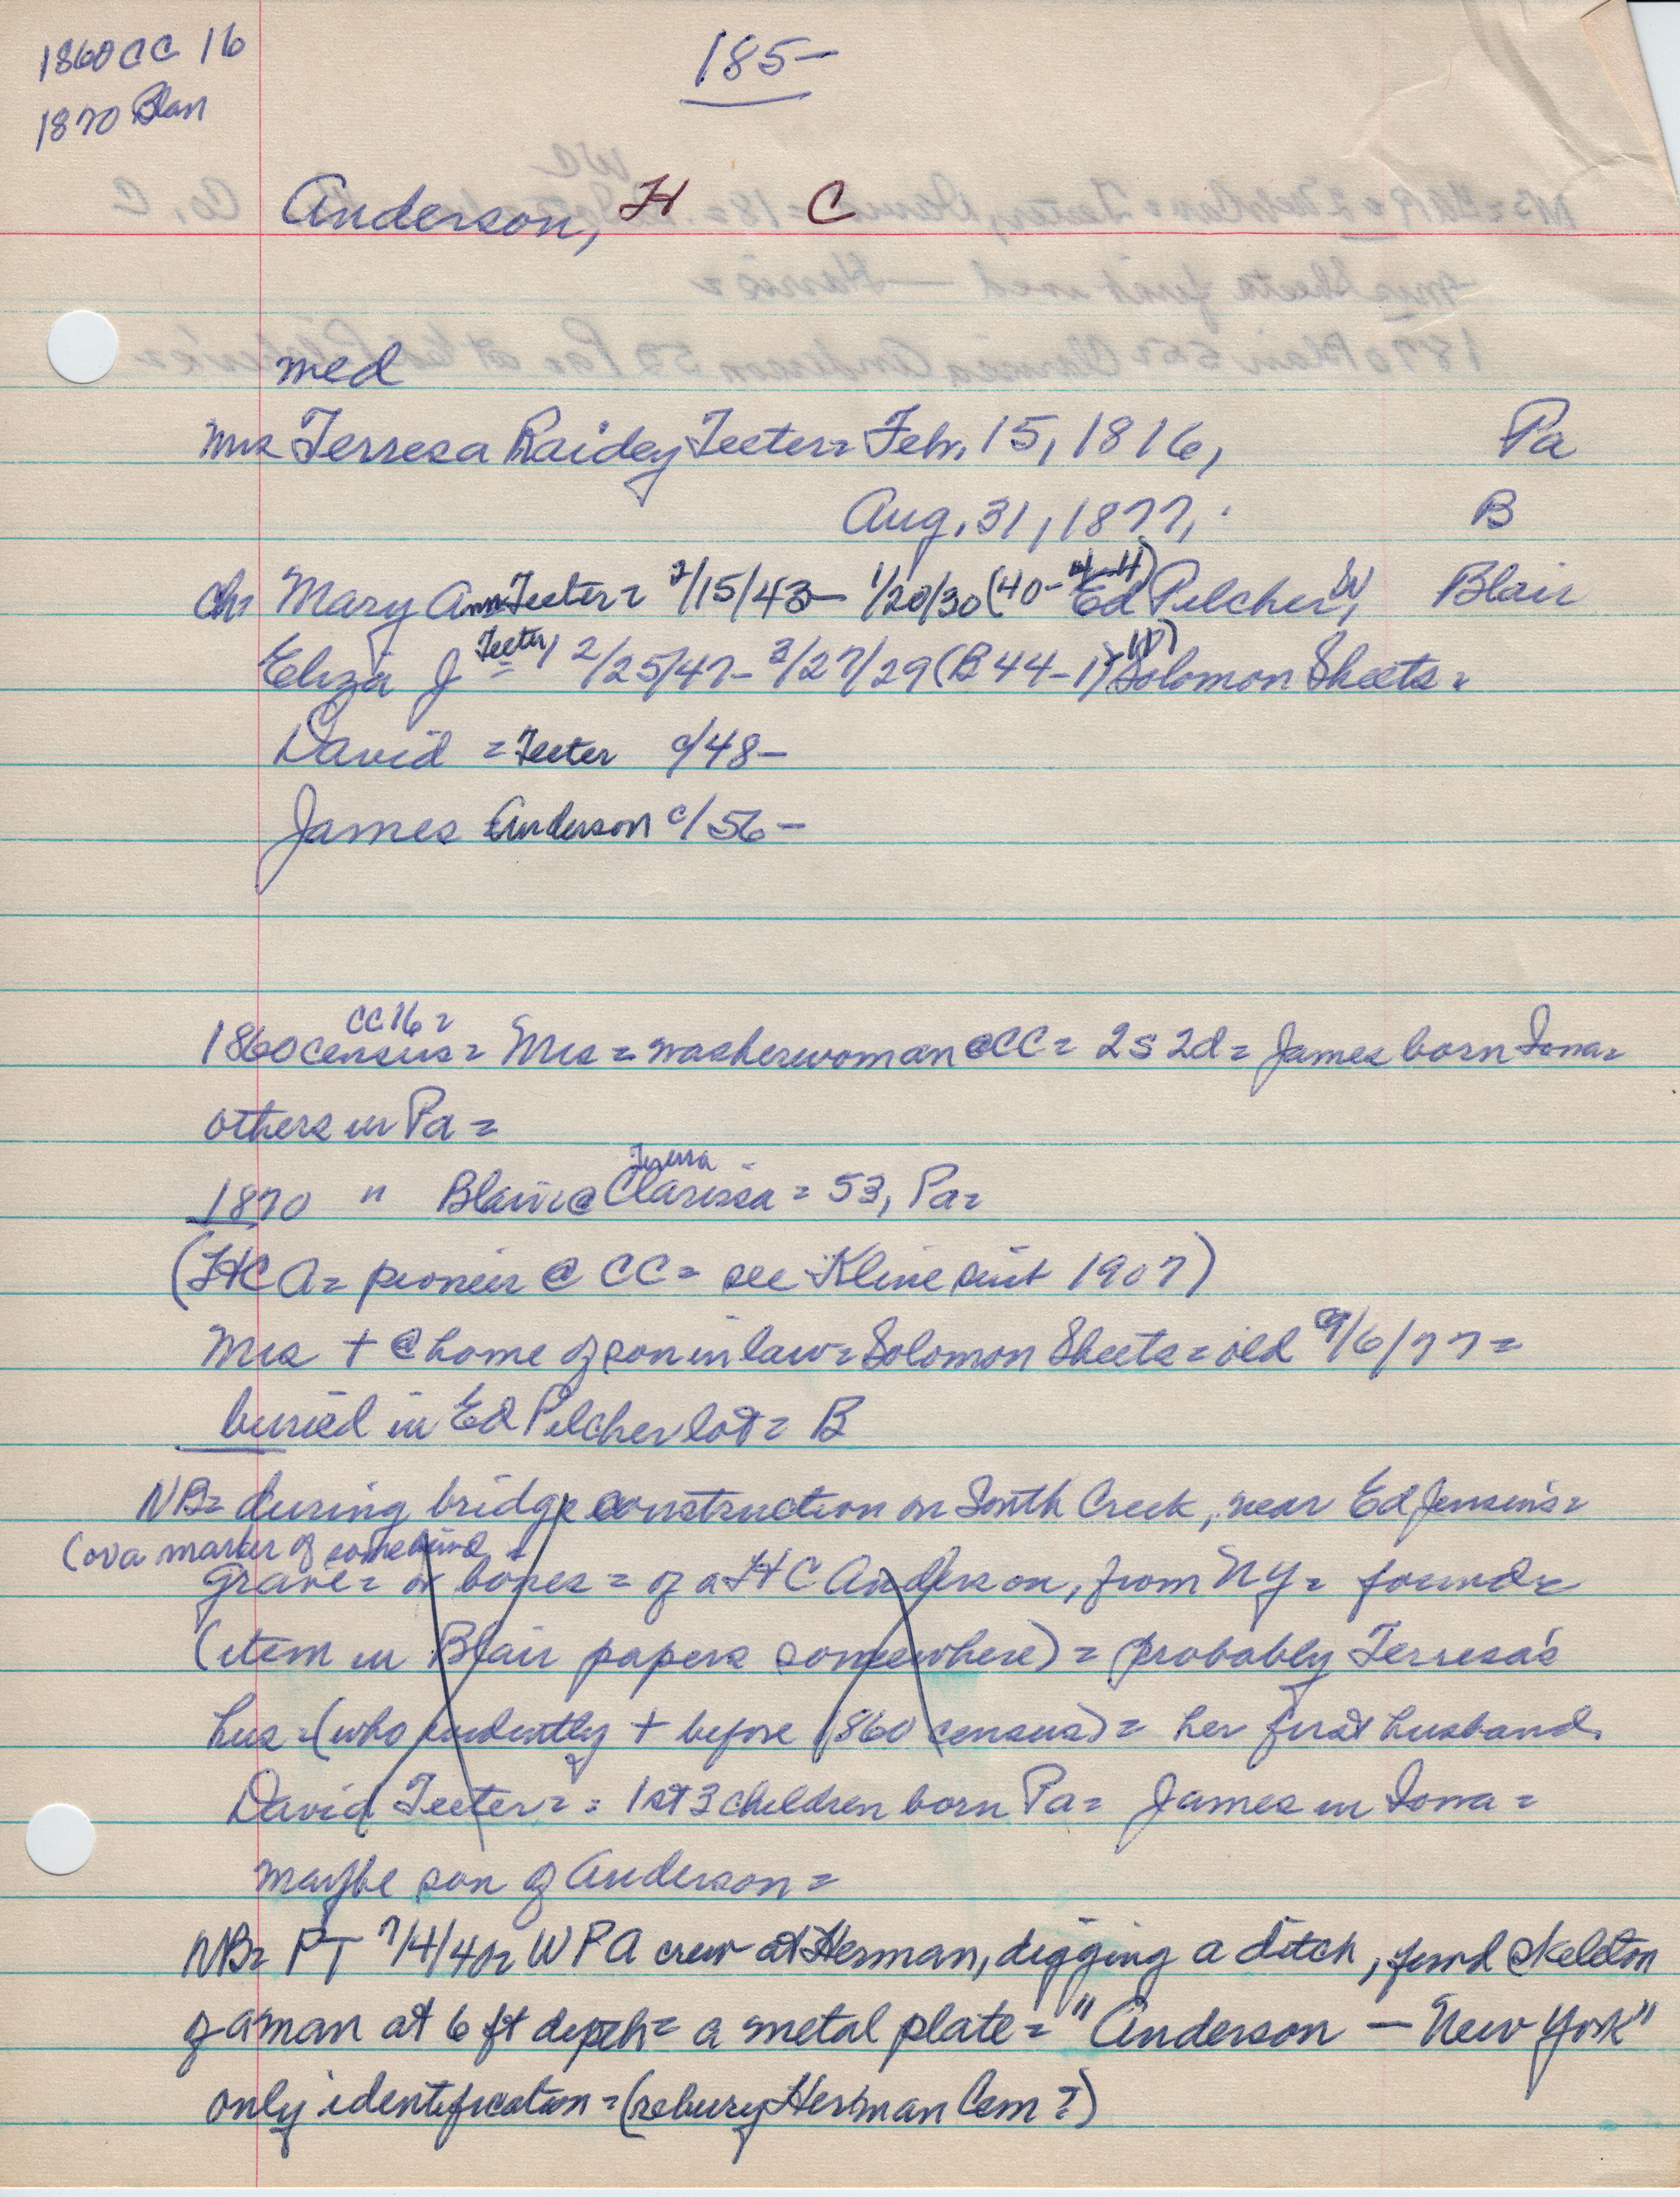 1860 CC 16
1870 Blair
185-
Anderson, H C
med
Mrs Terresa Raidey Teeter = Feb. 15, 1816, Pa
Aug. 31, 1877, B
ch Mary Ann Teeter = 2/15/43 - 1/20/30 (40-4-4) Ed Pilcher W, Blair
Eliza J Teeter, = 2/25/47 - 3/27/29 (B 44-1) Solomon Sheets =
David = Teeter c/48 -
James Anderson c/56 -
CC 16 =
1860 census = Mrs = washerwoman @ CC = 2s 2d = James born Iowa =
others in Pa =
Teressa
1870 " Blair @ Clarissa = 53, Pa =
(HCA = pioneer @ CC = see Kline suit 1907)
Mrs + @ home of son in law = Solomon Sheets = old 9/6/77 =
buried in Ed Pilcher lot = B
NB = during bridge construction on South Creek, near Ed Jensen's =
(or a marker of some kind
grave = or bones = of a HC Anderson, from NY = found =
(item in Blair papers somewhere) = probably Terresa's
hus = (who evidently + before 1860 census) = her first husband
David Teeter = = 1st 3 children born Pa = James in Iowa =
maybe son of Anderson =
NB = PT 7/4/40 = WPA crew at Herman, digging a ditch, found skeleton
of a man at 6 ft depth = a metal plate = "Anderson — New York"
only identification = (rebury Herman Cem ?)